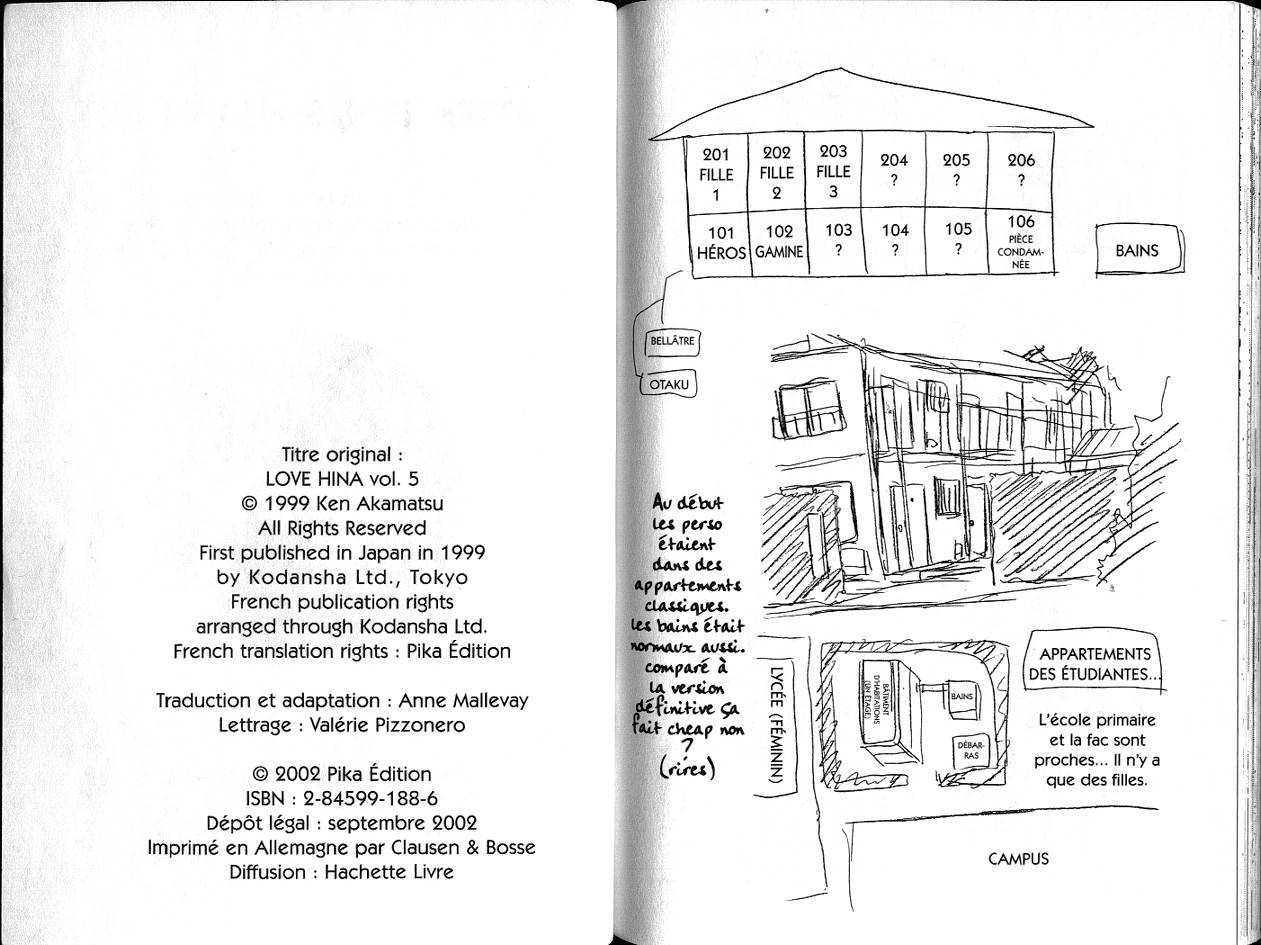 Titre original :
LOVE HINA vol. 5
© 1999 Ken Akamatsu
All Rights Reserved
First published in Japan in 1999
by Kodansha Ltd., Tokyo
French publication rights
arranged through Kodansha Ltd.
French translation rights : Pika Édition
Traduction et adaptation : Anne Mallevay
Lettrage : Valérie Pizzonero
© 2002 Pika Édition
ISBN : 2-84599-188-6
Dépôt légal : septembre 2002
Imprimé en Allemagne par Clausen & Bosse
Diffusion : Hachette Livre
201
FILLE
1
202
FILLE
2
203
FILLE
3
204
?
205
?
206
?
101
HÉROS
102
GAMINE
103
?
104
?
105
?
106
PIÈCE
CONDAM-
NÉE
BAINS
BELLÂTRE
OTAKU
Au début
les perso
étaient
dans des
appartements
classiques.
les bains était
normaux aussi.
comparé à
la version
définitive ça
fait cheap non
?
(rires)
LYCÉE (FÉMININ)
BÂTIMENT
D'HABITATIONS
(UN ÉTAGE)
BAINS
DÉBAR-
RAS
APPARTEMENTS
DES ÉTUDIANTES...
L'école primaire
et la fac sont
proches... Il n'y a
que des filles.
CAMPUS